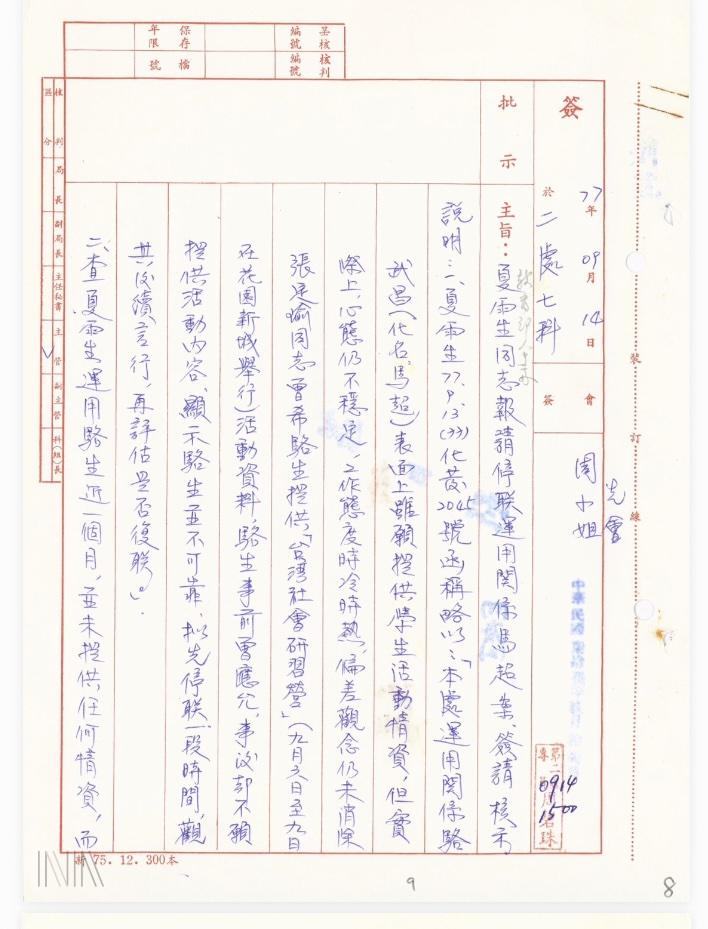 簽
77年09月14日
於二處七科
會簽
先會
周小姐
批示
主旨：夏雨生同志報請停联運用関係馬超案、簽請核示
說明：一、夏雨生77.9.13(77)化茂2045號函稱略以：「本處運用関係駱
武昌（化名馬超）表面上雖願提供學生活動情資，但實
際上，心態仍不穩定，工作態度時冷時熱，偏差觀念仍未消除
張足瑜同志曾希駱生提供「台湾社會研習營」（九月六日至九日
在花園新城舉行）活動資料，駱生事前曾應允，事後却不願
提供活動內容、顯示駱生並不可靠，拟先停联一段時間，觀
其後續言行，再評估是否復联」。
二、查夏雨生運用駱生近一個月，並未提供任何情資，而
核判區分
局長
副局長
主任秘書
主管
副主管
科(組)長
保存年限
檔號
編號
編號
核判
裝
訂
線
中華民國
第二
專
0914
1500
珠
新 75. 12. 300本
9
8